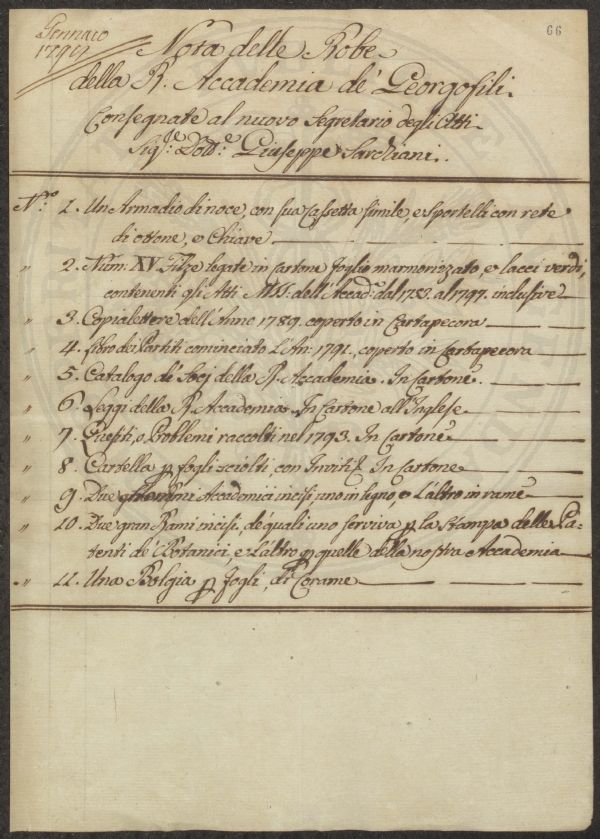 Gennaio
66
Nota delle Robe
della R. Accademia de' Georgofili.
Consegnate al nuovo Segretario degli Atti.
Sig.re Dott.e Giuseppe Sarchiani.
N.ro 1. Un Armadio di noce, con sua Cassetta simile, e Sportelli con rete
di ottone, e Chiave
" 2. Num. XV. Filze legate in cartone foglio marmorizzato, e lacci verdi,
contenenti gli Atti MSS: dell'Accad.a dal 1783. al 1797. inclusive
" 3. Copialettere dell'Anno 1789. coperto in Cartapecora
" 4. Libro dei Partiti cominciato L'An: 1791. coperto in Cartapecora
" 5. Catalogo de' Socj della R. Accademia. In Cartone.
" 6. Leggi della R. Accademia. In Cartone all'Inglese
" 7. Quesiti, o Problemi raccolti nel 1793. In Cartone
" 8. Cartella p fogli sciolti con Inviti. In Cartone
" 9. Due Accademici incisi uno in legno, e L'altro in rame
" 10. Due gran Rami incisi, de' quali uno serviva p la Stampa delle Pa=
tenti de' Botanici, e L'altro p quelle della nostra Accademia
" 11. Una Bolgia p fogli, di Corame